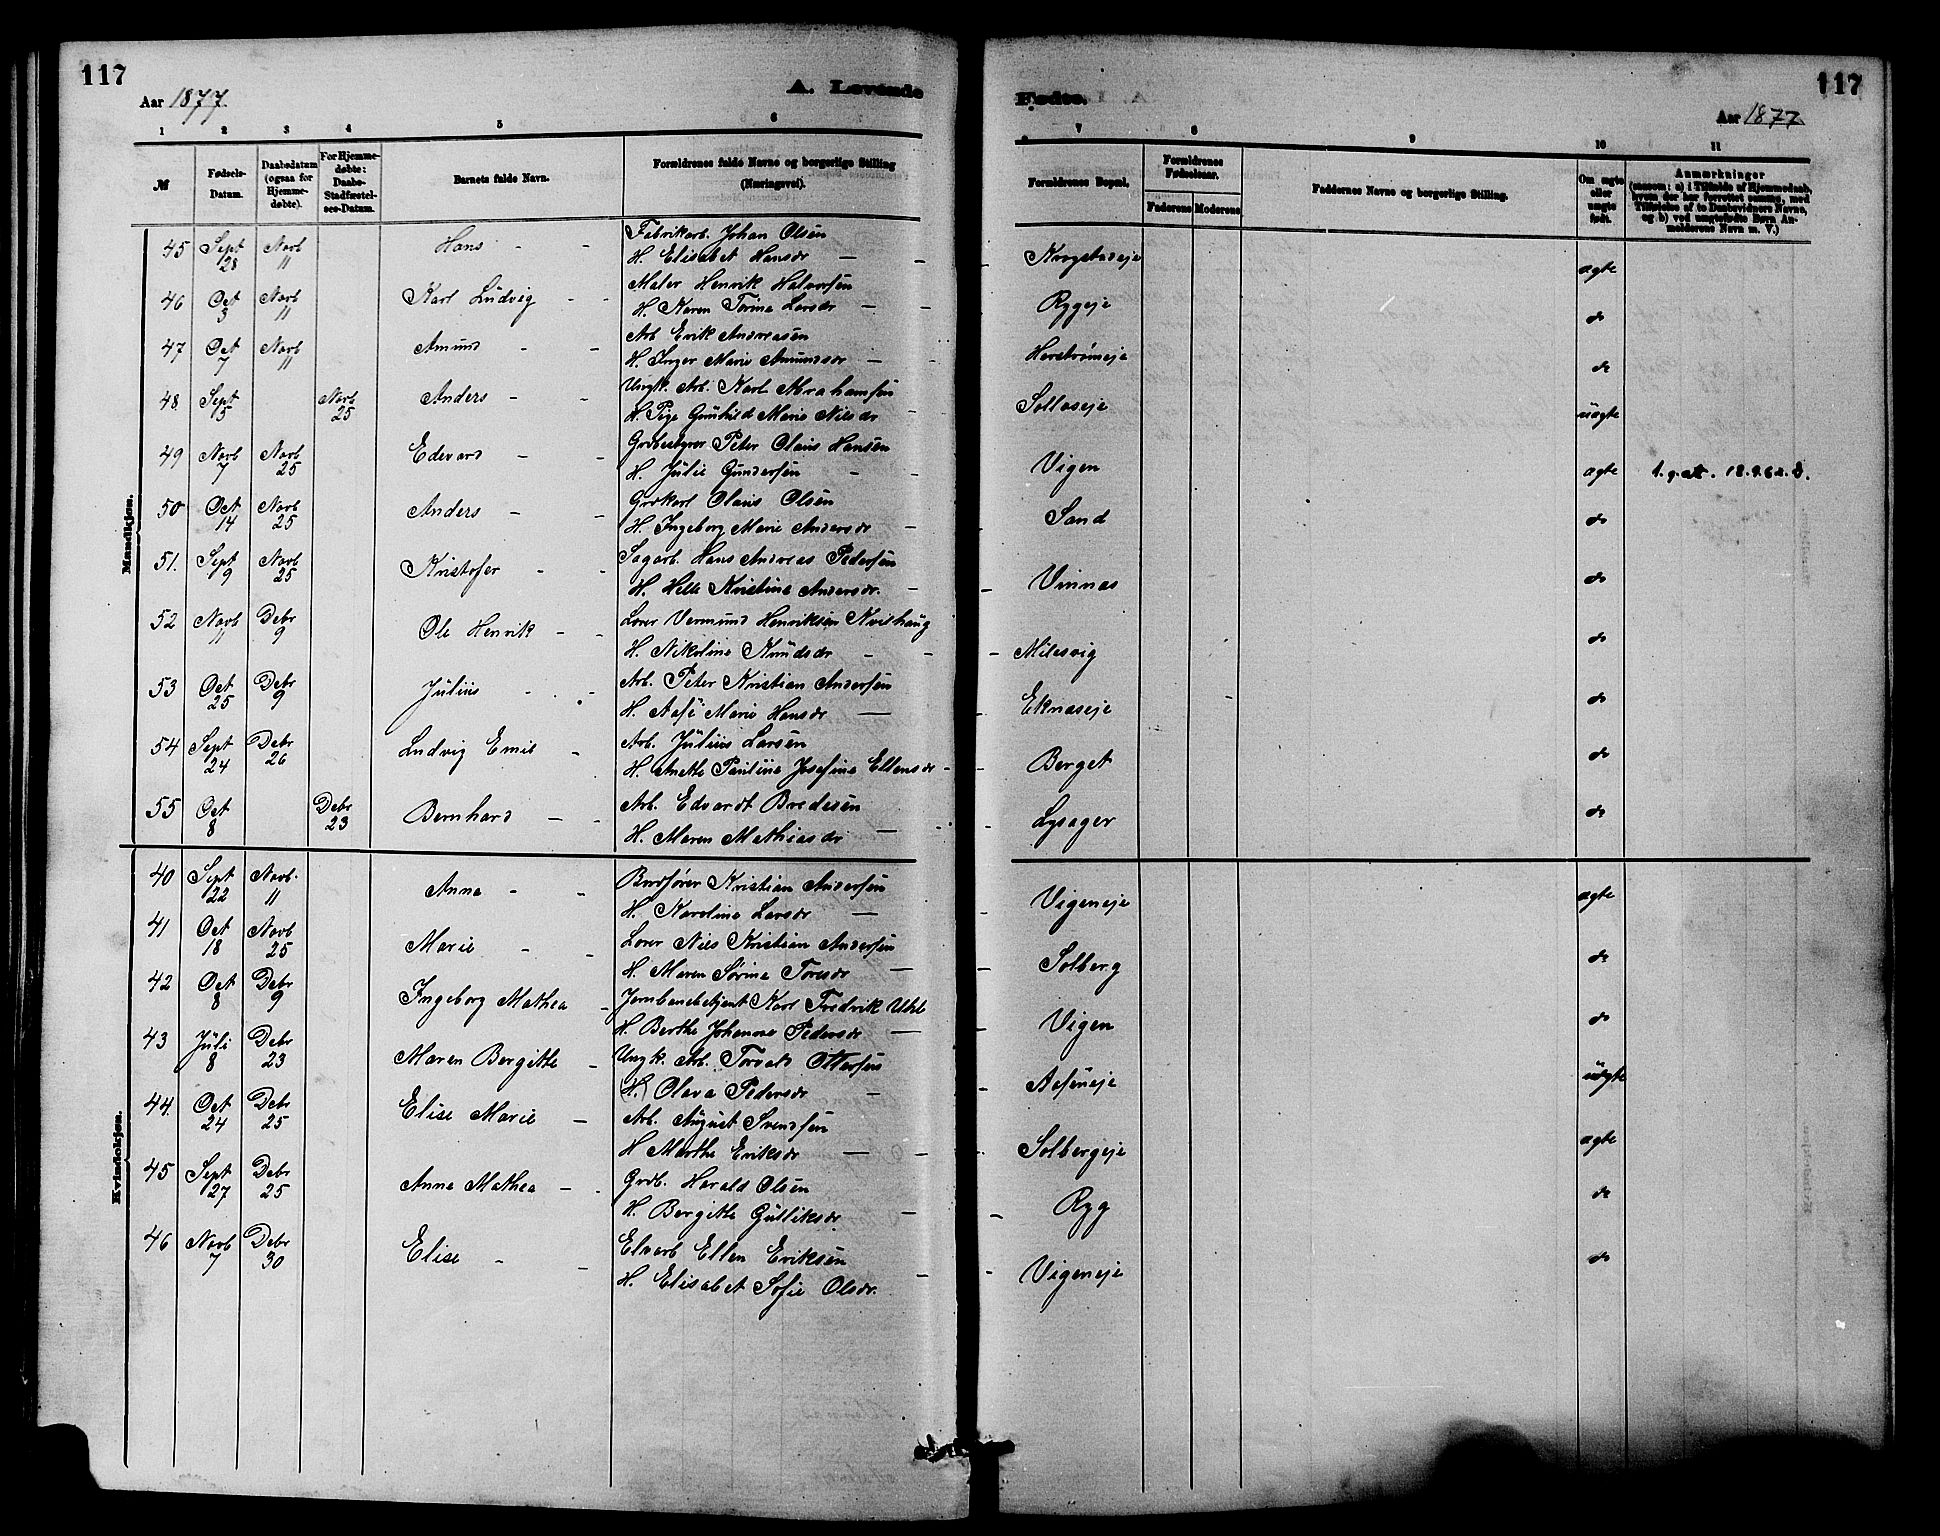 117
Aar 1877.
A. Levende
1 2 3 4 5 6
№
Fødsels-Datum.
Daabsdatum (ogsaa for Hjemmedøbte).
For Hjemmedøbte: Daabs-Stadfæstelses-Datum.
Barnets fulde Navn.
Forældrenes fulde Navne og borgerlige Stilling (Næringsvei).
Mandkjøn.
45 Sept 28 Novb 11 Hans - - Fabrikarb. Johan Olsen
H. Elisabet Hansdr -
46 Oct 3 Novb 11 Karl Ludvig - - Maler Henrik Halvorsen
H. Karen Torine Larsdr -
47 Oct 7 Novb 11 Amund - - Arb Erik Andreasen
H. Inger Marie Amundsdr -
48 Sept 5 Novb 25 Anders - - Ungk. Arb. Karl Abrahamsen
H. Pige Gunhild Marie Nilsdr -
49 Novb 7 Novb 25 Edevard - - Grdbestyrer Peter Olaus Hansen
H. Julie Gundersen -
50 Oct 14 Novb 25 Anders - - Grdkarl Olaus Olsen
H. Ingeborg Marie Andersdr -
51. Sept 9 Novb 25 Kristofer - - Sagarb. Hans Andreas Pedersen
H. Helle Kristine Andersdr. -
52 Novb 11 Debr 9 Ole Henrik - - Lorer Vermund Henriksen Kvishaug
H. Nikoline Knudsdr -
53 Oct 25 Debr 9 Julius - - Arb. Peter Kristian Andersen
H. Aase Marie Hansdr -
54 Sept 24 Debr 26 Ludvig Emil - Arb. Julius Larsen
H. Anette Pauline Josefine Ellensdr -
55 Oct 8 Debr 23 Bernhard - - Arb. Edvardt Bredesen
H. Maren Mathiasdr -
Kvindekjøn.
40 Sept 22 Novb. 11 Anna - - Kristian Andersen
H. Karoline Larsdr -
41 Oct 18 Novb 25 Marie - - Lorer Nils Kristian Andersen
H. Maren Sørine Toresdr -
42 Oct 8 Debr 9 Ingeborg Mathea - Jernbanebetjent Karl Fredrik
H. Berthe Johanne Pedersdr -
43 Juli 8 Debr 23 Maren Bergitte - Ungk. Arb. Torvald Ottersen
(H.) Olava Pedersdr -
44. Oct 24 Debr 25 Elise Marie - Arb. August Svendsen
H Marthe Eriksdr -
45 Sept 27 Debr 25 Anna Mathea - - Grdb. Harald Olsen
H. Bergitte Gulliksdr. -
46 Novb 7 Debr 30 Elise - - Elvarb Ellen Eriksen
H. Elisabet Sofie Olsdr. -
117
Fødte.
Aar 1877
7 8 9 10 11
Forældrenes Bopæl.
Forældrenes Fødselsaar.
Faderens Moderens
Faddernes Navne og borgerlige Stilling.
Om ægte eller uægte født.
Anmærkninger
(saasom: a) i Tilfælde af Hjemmedaab, hvem der har forrettet samme, med Tilføielse af to Daabsvidners Navne, og b) ved uægtefødte Børn Anmelderens Navn m. V.)
Krogstadeje ægte
Ryggeje do
Horstrømeje do
Solloseje uægte
Vigen ægte
Sand do
Vinnas do
Milesvig do
Eknaseje do
Berget do
Lysager do
Vigeneje ægte
Solberg do
Vigen do
Aaseneje uægte
Solbergeje ægte
Ryg do
Vigeneje do